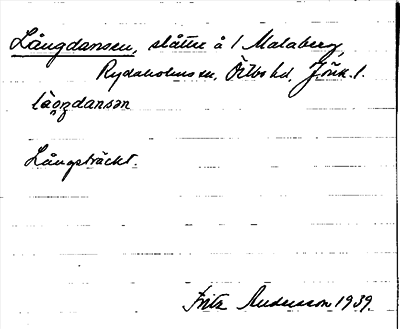 Långdansen, slåtter å 1 Malaberg,
Rydaholms sn, Östbo hd, Jönk. l.
låŋdansən
Långsträckt.
Fritz Andersson 1939.